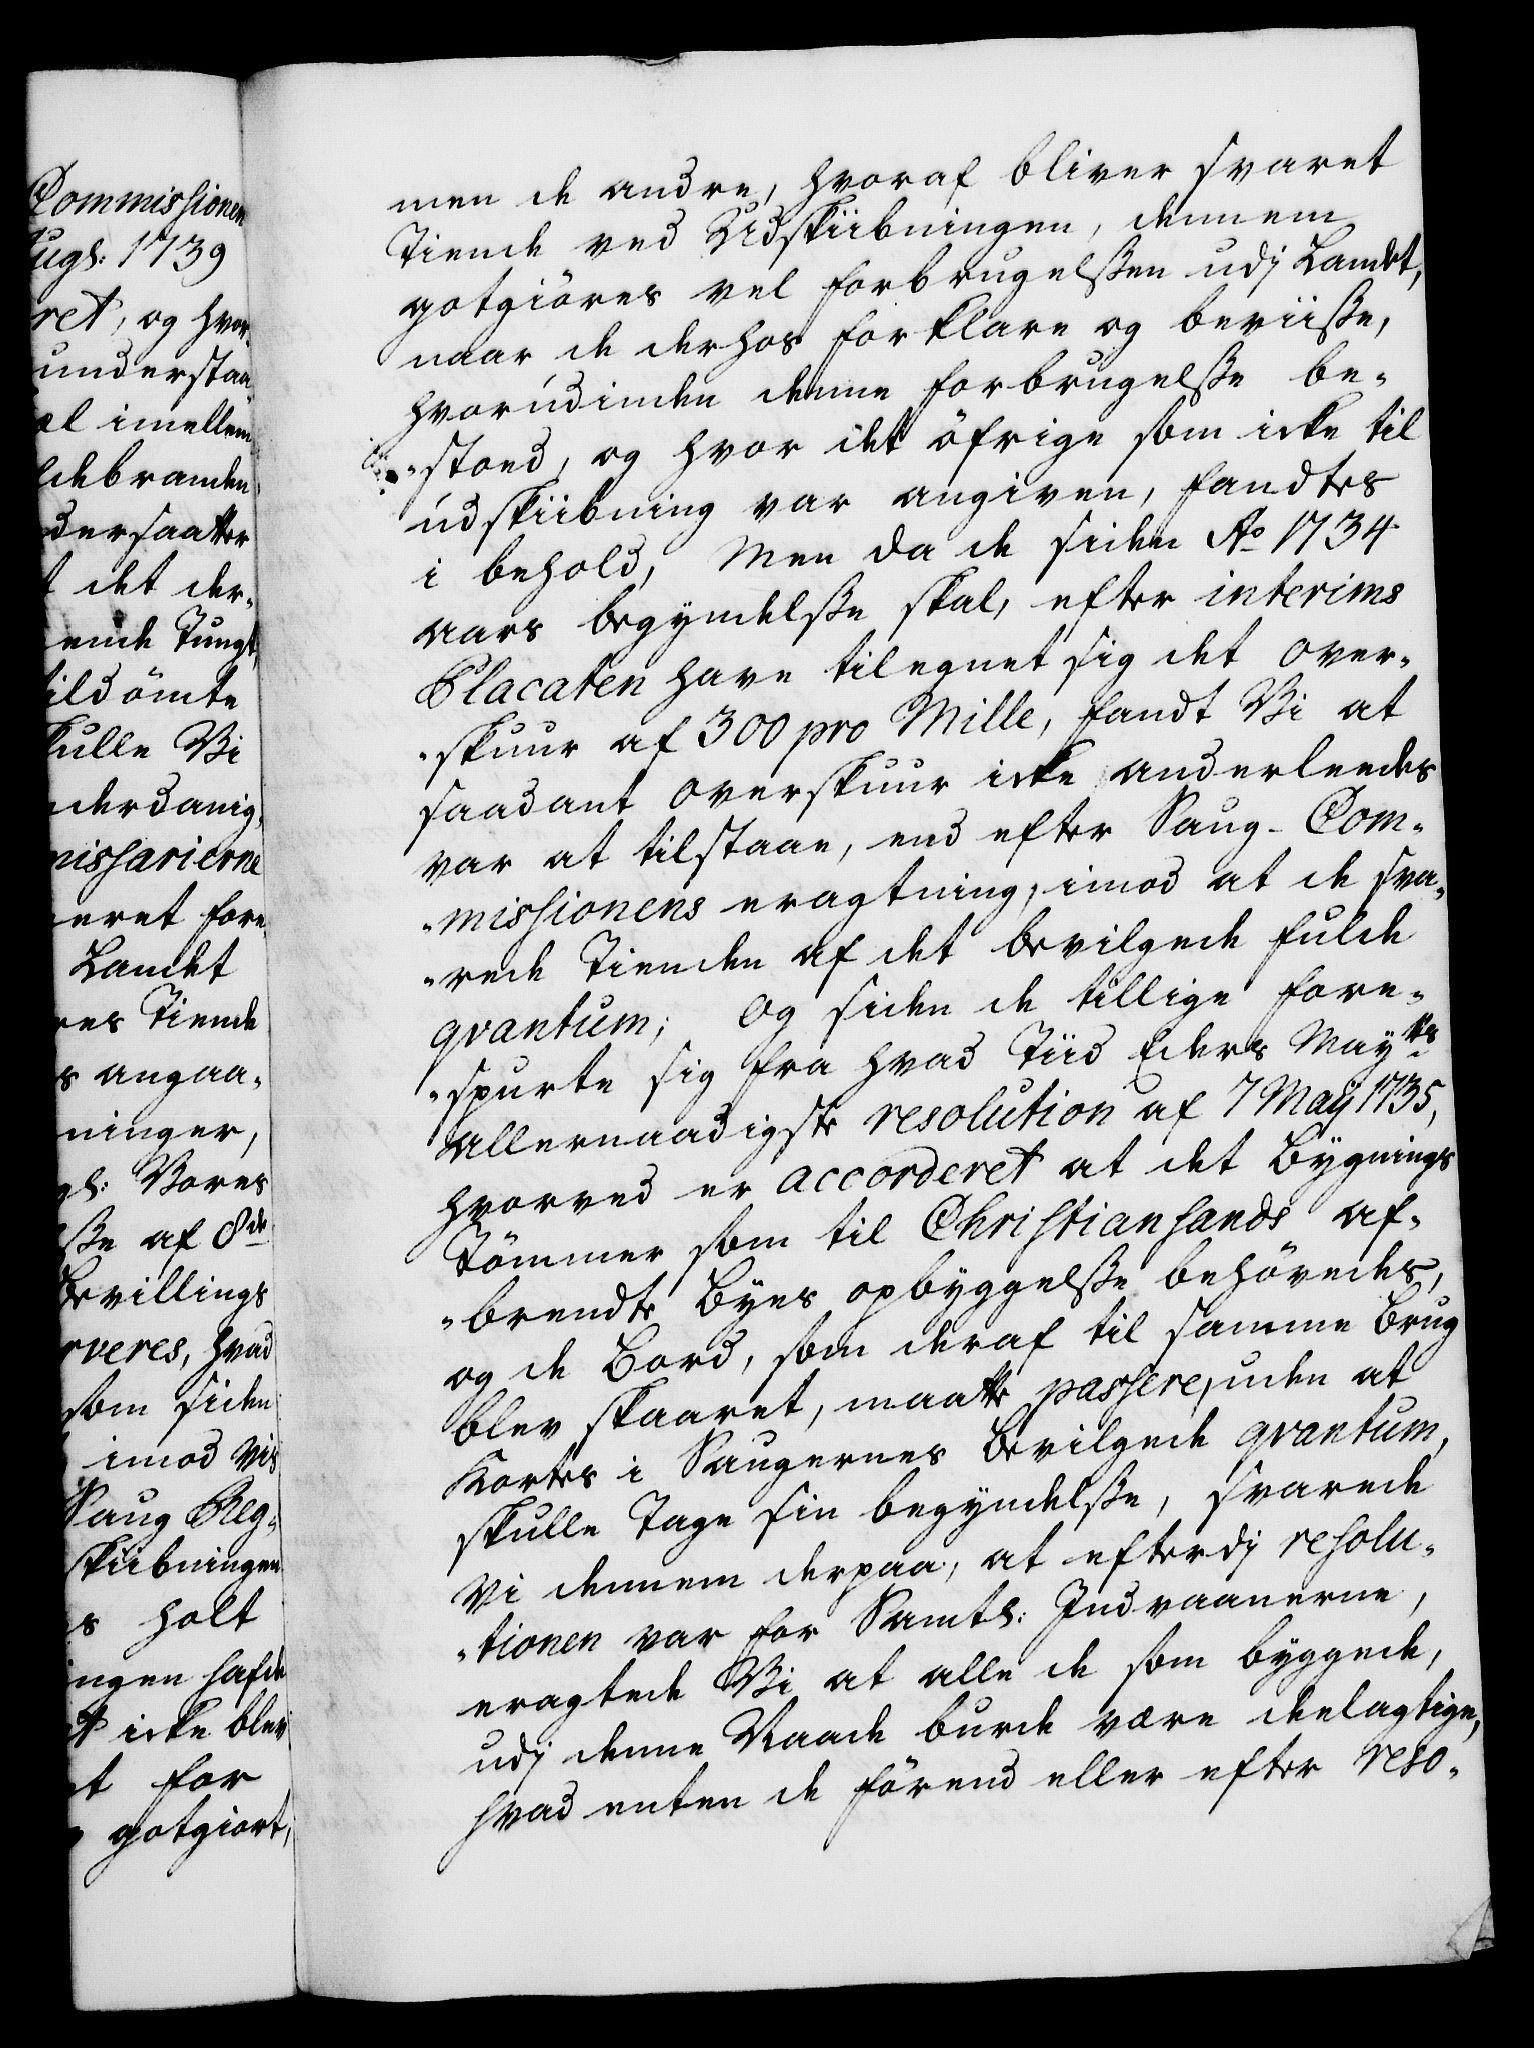 Commissionen
Augs: 1739
ret, og hvor
understaa
el imellem
ldebranden
dersaatter
t det der-
ende Tungt,
tildömte
kulle Vi
nderdanig,
missarierne
eret fore
Landet
res Tiende
s angaa-
ninger,
gl: Vores
ße af 8de
Bevillings
rveres, hvad
som siden
imod vis
Saug Reg-
skiibningen
s holt
ingen hafde
t icke blev
t for
gotgiort,
men de andre, hvoraf bliver svaret
Tiende ved Udskiibningen, dennem
gotgiöres vel forbrugelßen udj Landet,
naar de derhos forklare og beviiße,
hvorudinden denne forbrugelße be-
-stoed, og hvor det öfrige som icke til
udskiibning var angiven, fandtes
i behold, Men da de siden Ao 1734
aars begyndelße skal, efter interims
Placaten have tilegnet sig det over-
-skuur af 300 pro Mille, fandt Vi at
saadant overskuur icke anderleedes
var at tilstaae, end efter Saug-Com-
-missionens eragtning, imod at de sva-
-rede Tienden af det bevilgede fulde
qvantum; og siden de tillige fore-
-spurte sig fra hvad Tiid Eders Maytts
allernaadigste resolution af 7 Maÿ 1735,
hvorved er accorderet at det Bygnings
Tömmer som til Christiansands af-
-brendte Byes opbyggelße behövedes,
og de Bord, som deraf til samme Brug
blev skaaret, maatte passere, uden at
kortes i Saugernes bevilgede qvantum,
skulle tage sin begyndelße, svarede
Vi dennem derpaa, at efterdj resolu-
-tionen var for Samtl: Indvaanerne,
eragtede Vi at alle de som byggede,
udj denne Naade burde være deelagtige,
hvad enten de förend eller efter reso-